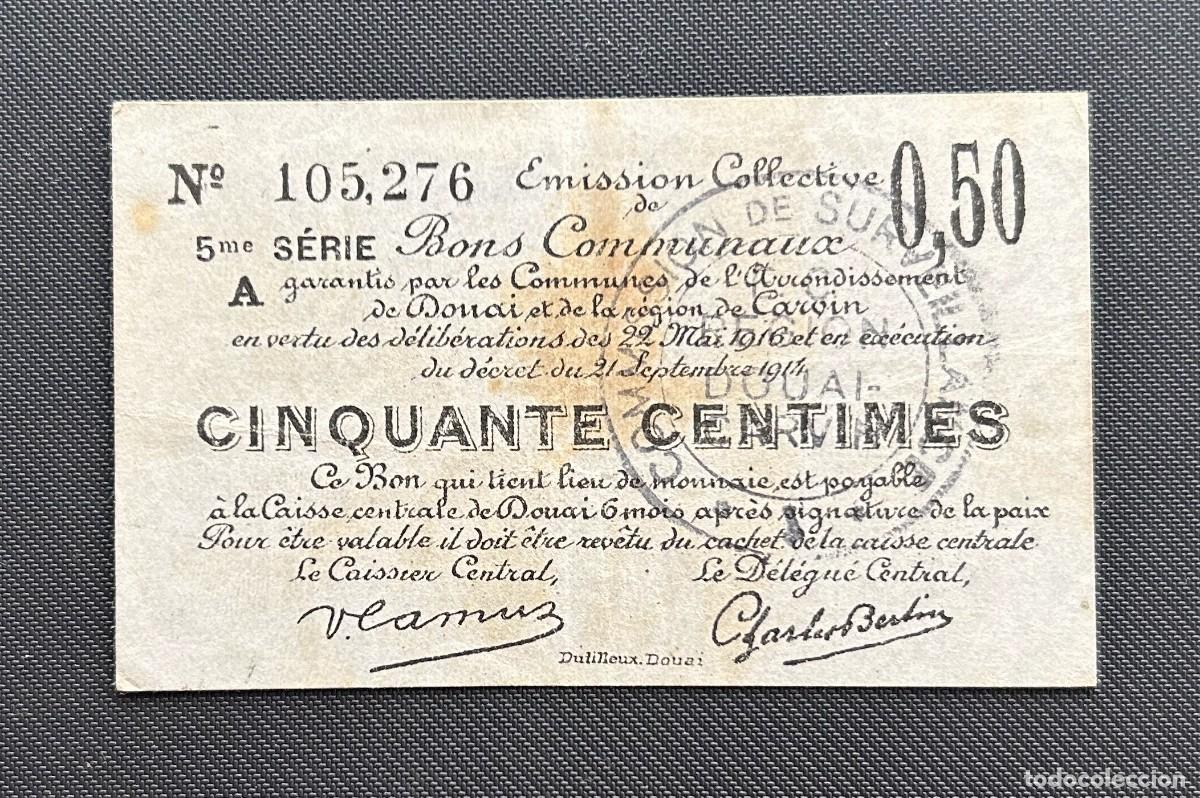 Nº 105,276 Emission Collective 0,50
de
5me SÉRIE Bons Communaux
A garantis par les Communes de l'Arrondissement
de Douai et de la région de Carvin
en vertu des délibérations des 22 Mai 1916 et en exécution
du décret du 21 Septembre 1914
CINQUANTE CENTIMES
Ce Bon qui tient lieu de monnaie est payable
à la Caisse centrale de Douai 6 mois après signature de la paix
Pour être valable il doit être revêtu du cachet de la caisse centrale
Le Caissier Central, Le Délégué Central,
Charles Bertin
Dutilleux. Douai
DE
RÉGION
DOUAI-
CARVIN
todocoleccion